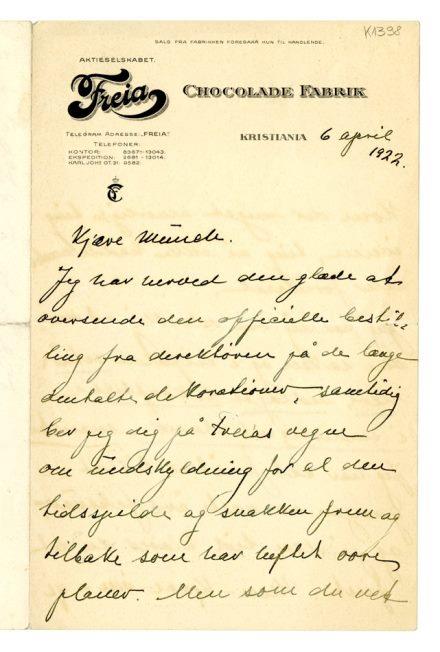 K1338
SALG FRA FABRIKKEN FOREGAAR KUN TIL HANDLENDE.
AKTIESELSKABET
Freia
CHOCOLADE FABRIK
TELEGRAM ADRESSE: „FREIA“
TELEFONER:
KONTOR: 83671-13043.
EKSPEDITION: 2681 - 13014.
KARL JOHS GT. 31. 9582.
KRISTIANIA 6 april
1922.
Kjære Munch.
Jeg har herved den glæde at
oversende den officielle bestil-
ling fra direktören på de længe
omtalte dekorationer, samtidig
ber jeg dig på Freias vegne
om undskyldning for al den
tidsspilde og snakken frem og
tilbake som har heftet vore
planer. Men som du vet